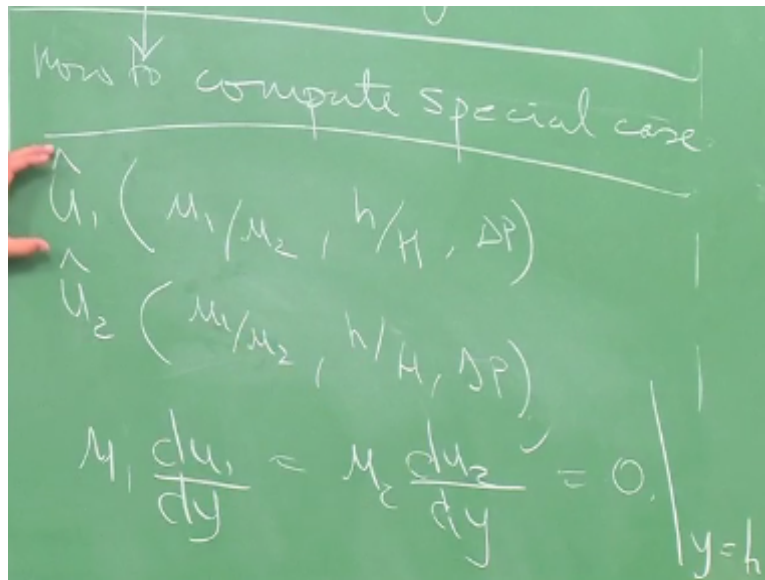 how to compute special case
û₁ ( μ₁/μ₂ , h/H , ΔP)
û₂ ( μ₁/μ₂ , h/H , ΔP)
μ₁ du₁/dy = μ₂ du₂/dy = 0. |y=h